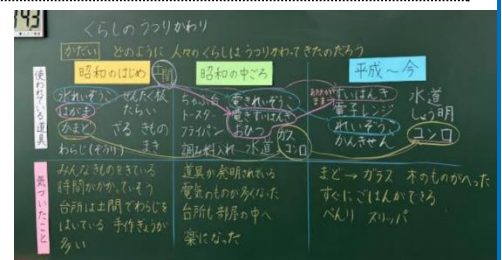 143
くらしのうつりかわり
かだい どのように人々のくらしはうつりかわってきたのだろう
昭和のはじめ
土間
昭和の中ごろ
平成~今
使われている道具
水れいぞうこ せんたく板
はがま たらい
かまど ざる きもの
わらじ(ぞうり) まき
ちゃぶ台 電きれいぞうこ
トースター 電きすいはんき
フライパン おひつ ガス
調み料入れ 水道 コンロ
すいはんき 水道
電子レンジ しょう明
れいぞうこ コンロ
かんきせん
気づいたこと
みんなきものをきている
時間がかかっていそう
台所は土間でわらじを
はいている 手作ぎょうが
多い
道具が発明されている
電気のものが多くなった
台所も部屋の中へ
楽になった
まど→ガラス 木のものがへった
すぐにごはんができる
べんり スリッパ